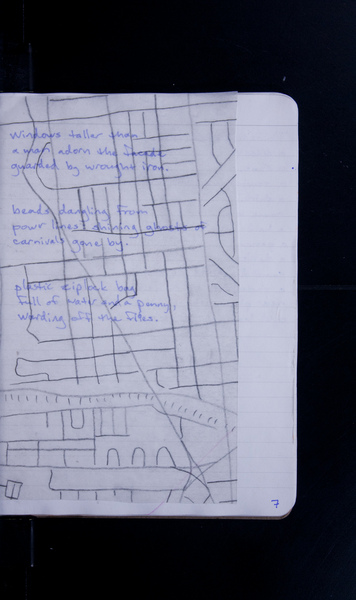 Windows taller than
a man adorn the facade
guarded by wrought iron.
beads dangling from
powr lines shining ghosts of
carnivals gone by.
plastic zip lock bag
full of water and a penny,
warding off the flies.
7